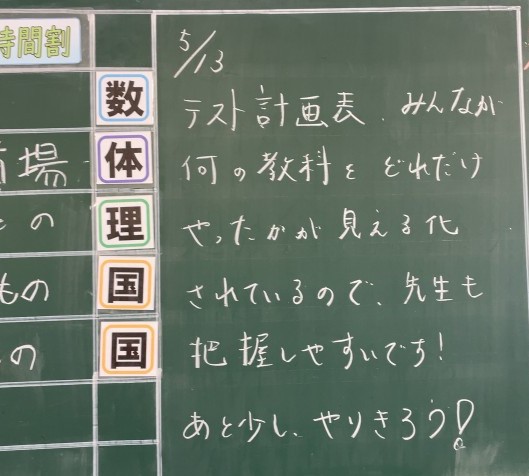 時間割
数
体
理
国
国
場
の
もの
の
5/13
テスト計画表、みんなが
何の教科をどれだけ
やったかが見える化
されているので、先生も
把握しやすいです!
あと少し、やりきろう!